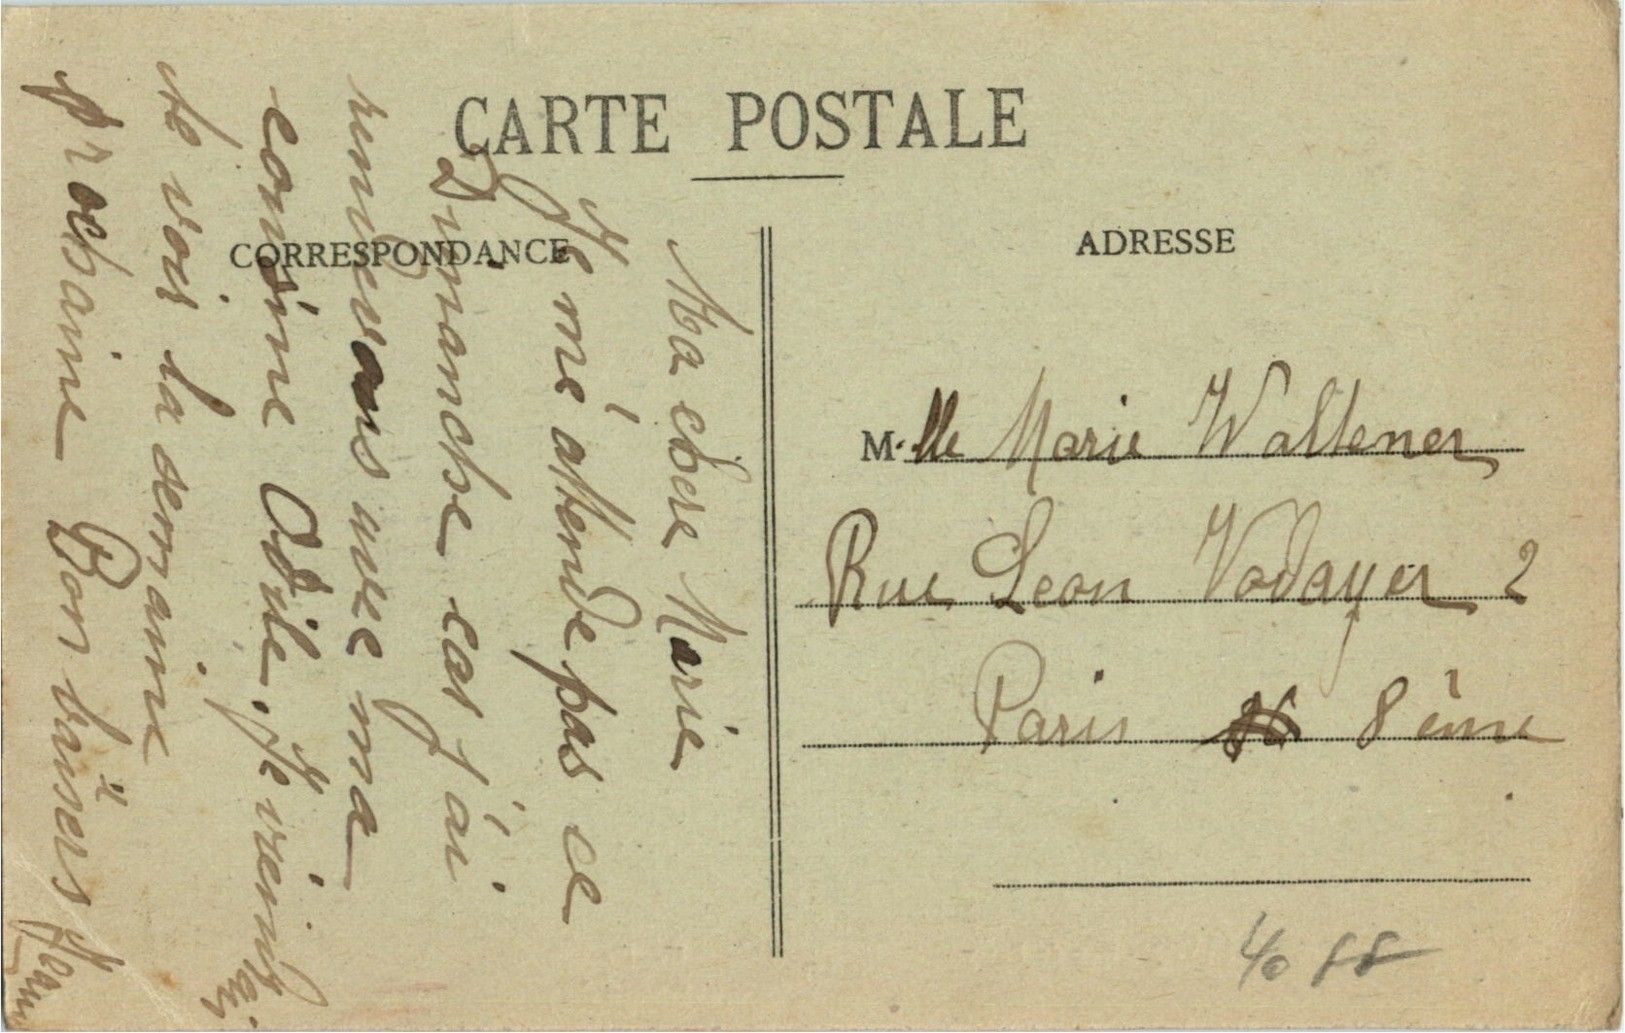 CARTE POSTALE
CORRESPONDANCE
ADRESSE
Ma chere Marie
Je mé attende pas ce
Dimanche car j'ai
rendevous avec ma
cousine Odile. Je viens
te voir la semaine
prochaine Bon baisers
M. lle Marie Waltener
Rue Leon Vodayer 2
Paris 8ème